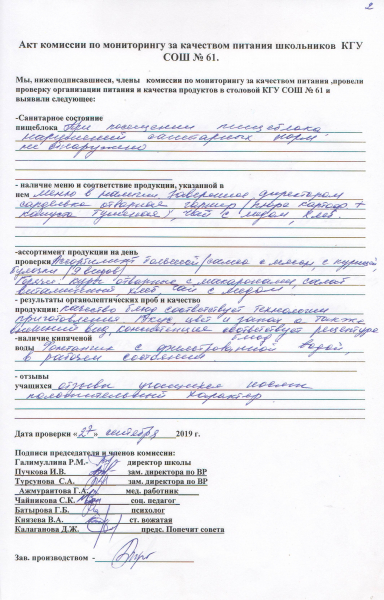 2
Акт комиссии по мониторингу за качеством питания школьников КГУ
СОШ № 61.
Мы, нижеподписавшиеся, члены комиссии по мониторингу за качеством питания ,провели
проверку организации питания и качества продуктов в столовой КГУ СОШ № 61 и
выявили следующее:
-Санитарное состояние
пищеблока При посещении пищеблока
нарушений санитарных норм
не обнаружено
- наличие меню и соответствие продукции, указанной в
нем меню в наличии заверенное директором
сарделька отварная, гарнир (пюре картоф +
капуста тушеная), чай с медом, хлеб.
-ассортимент продукции на день
проверки Ассортимент с мясом, с курицей,
булочки (9 видов)
отварные с макаронами, салат
витаминный, хлеб, чай с медом,
- результаты органолептических проб и качество
продукции: качество блюд соответствует технологии
приготовления. Вкус, цвет и запах а также
внешний вид, консистенция соответствует рецептуре
блюд
-наличие кипяченой
воды Фонтанчик с фильтрованной водой,
в рабочем состоянии
- отзывы
учащихся отзывы учащихся носят
положительный характер
Дата проверки «27» сентября 2019 г.
Подписи председателя и членов комиссии:
Галимуллина Р.М.- директор школы
Пучкова И.В. зам. директора по ВР
Турсунова С.А. зам. директора по ВР
Ажмуратова Г.А. мед. работник
Чайникова С.К. соц. педагог
Батырова Г.Б. психолог
Князева В.А. ст. вожатая
Калаганова Д.Ж. предс. Попечит совета
Зав. производством -